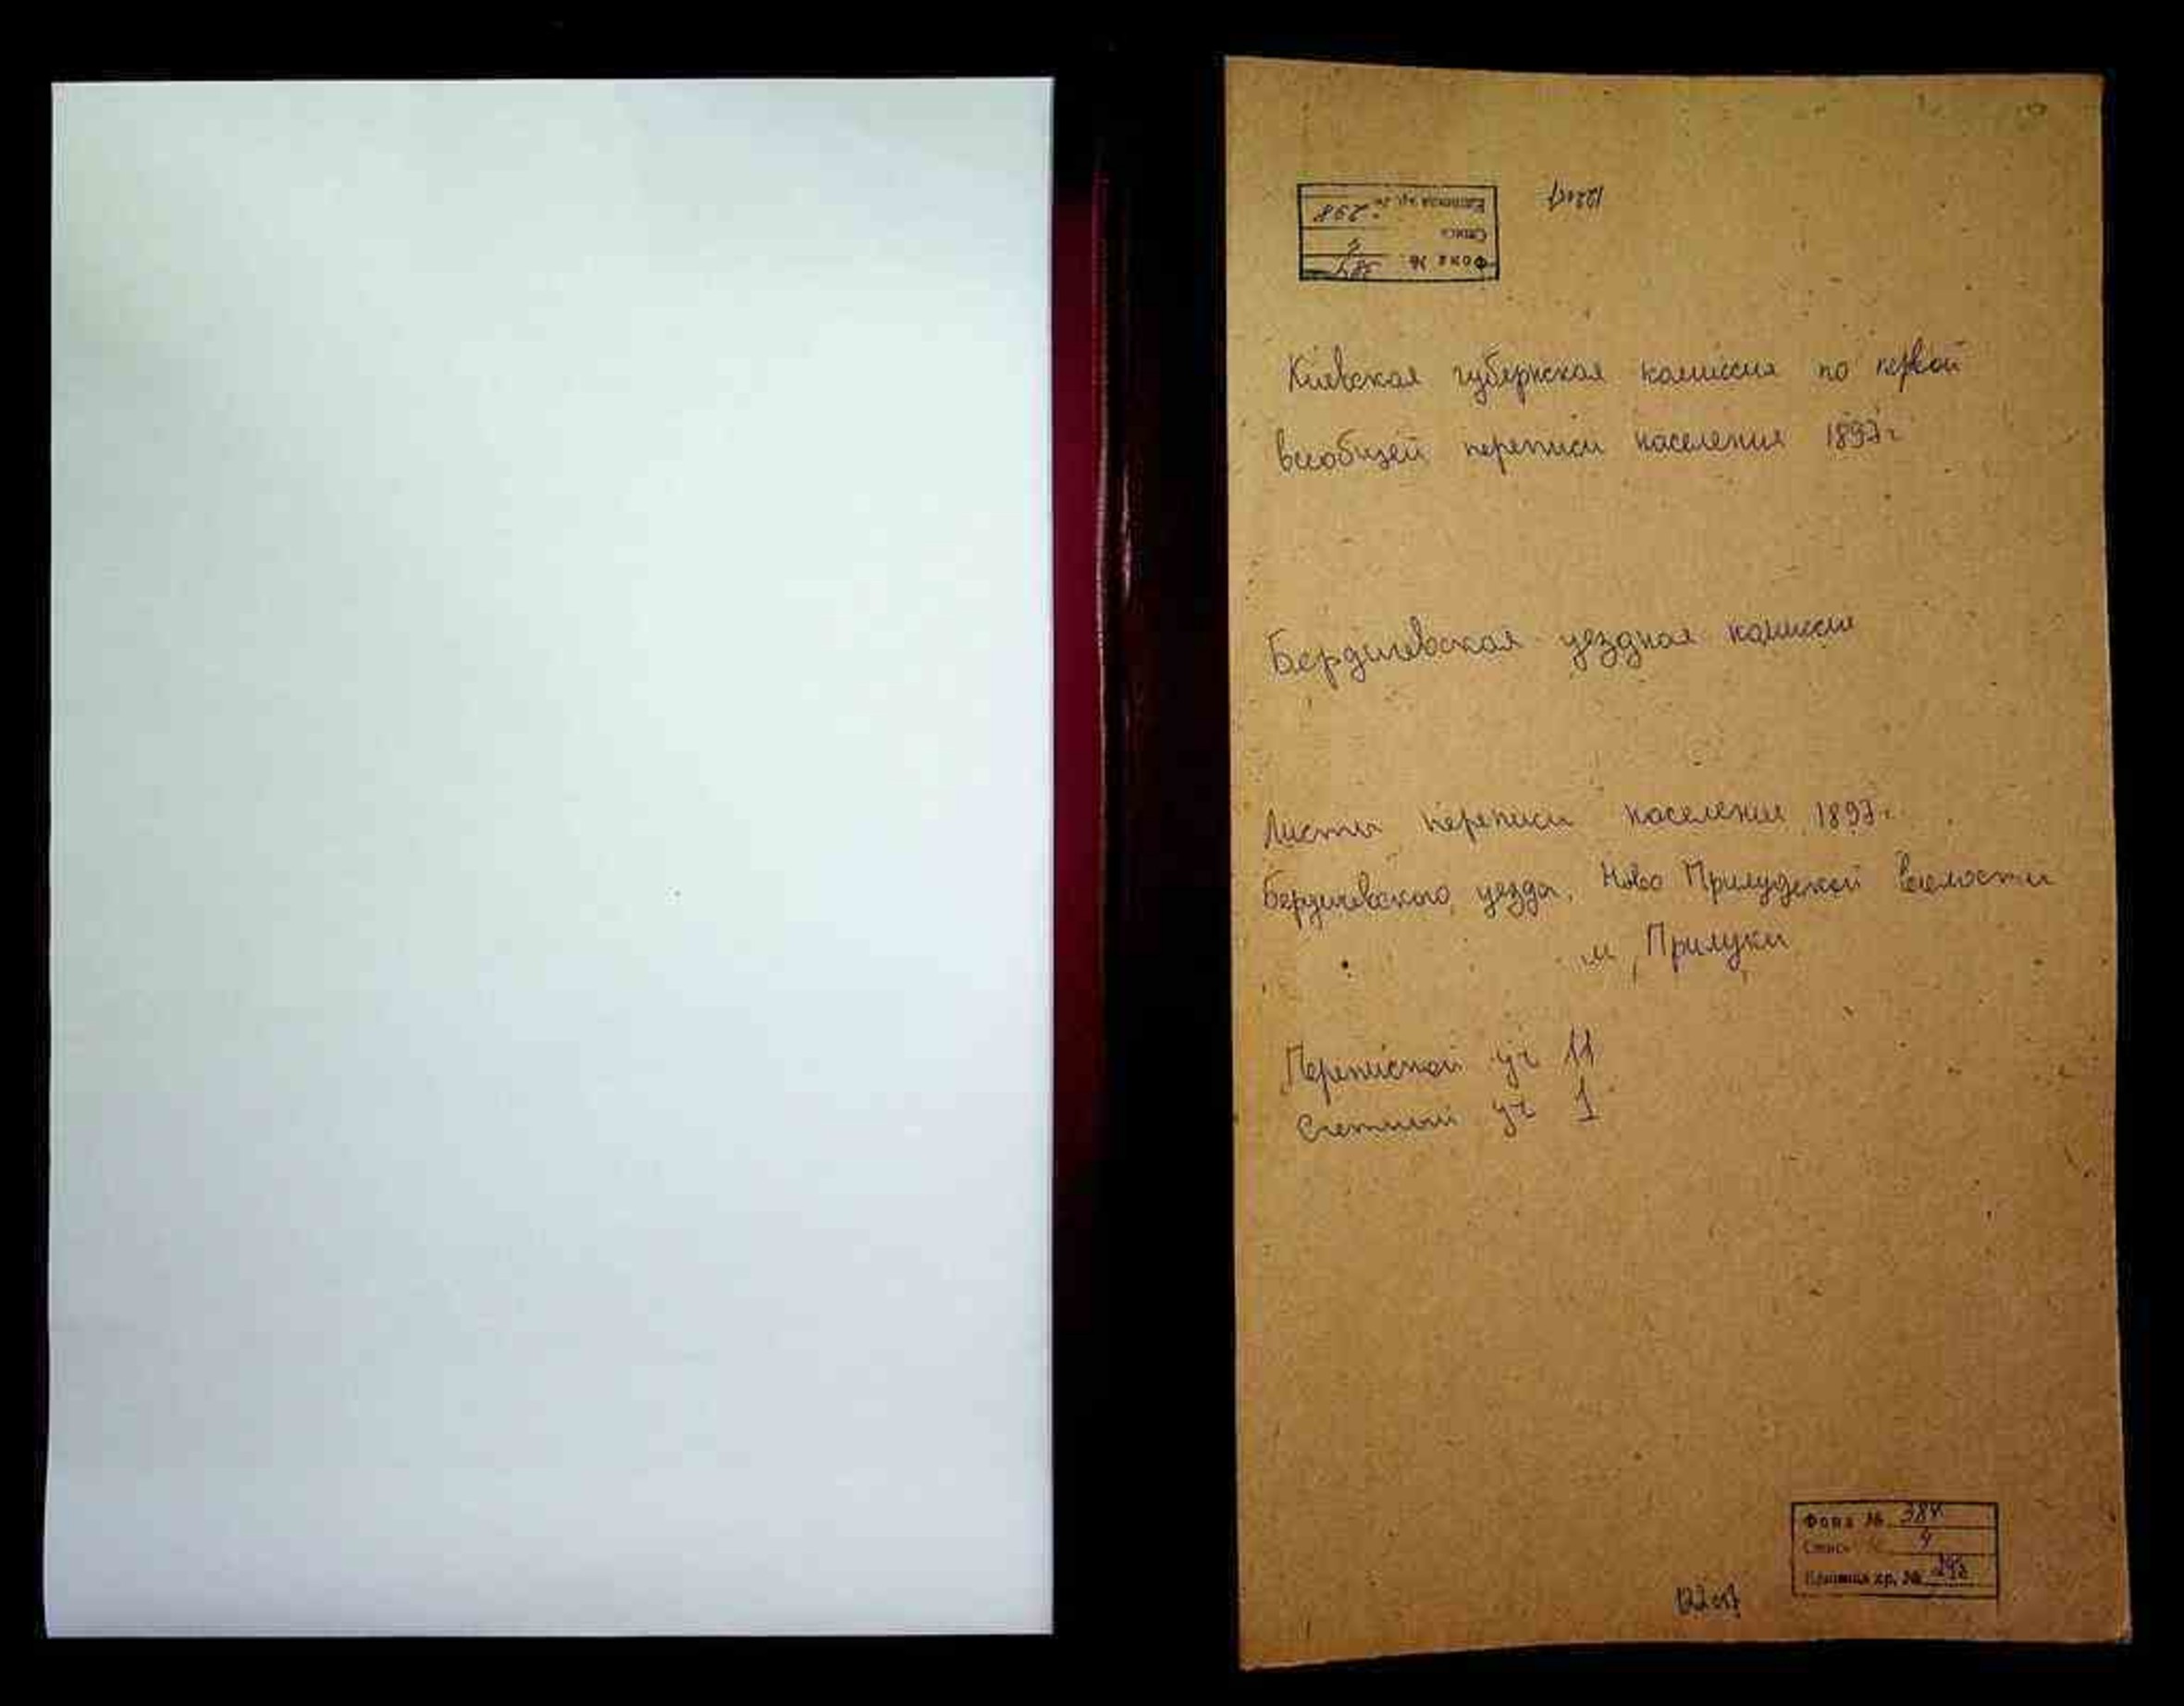 Фонд № 384
Опись 9
Единица хр. № 298
Киевская губернская комиссия по первой
всеобщей переписи населения 1897г
Бердичевская уездная комиссия
Листы переписи населения 1897г.
Бердичевского уезда, Ново Прилуцкой волости
м Прилуки
Переписной уч 11
Счетный уч 1
Фонд № 384
Опись 9
Единица хр. № 298